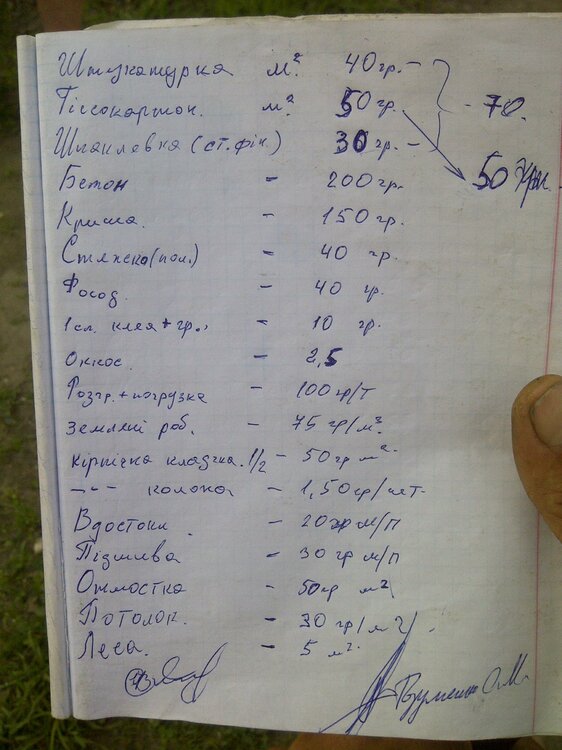 Штукатурка м² 40 гр. - 70.
Гіпсокартон. м² 50 гр.
Шпаклевка (ст. фін.) 30 гр. - 50 грн.
Бетон - 200 гр.
Криша - 150 гр.
Стяжка (пол.) - 40 гр.
Фосад. - 40 гр.
1 сл. клея + гр. - 10 гр.
Откос. - 2,5
Розгр. + погрузка - 100 гр/т
Земляні роб. - 75 гр/м³
Кірпічка кладка. 1/2 - 50 гр м²
-"- колона - 1,50 гр/шт.
Вдостоки - 20 гр м/п
Підшива - 30 гр м/п
Отмостка - 50 гр м²
Потолок. - 30 гр/м²/.
Леса. - 5 м².